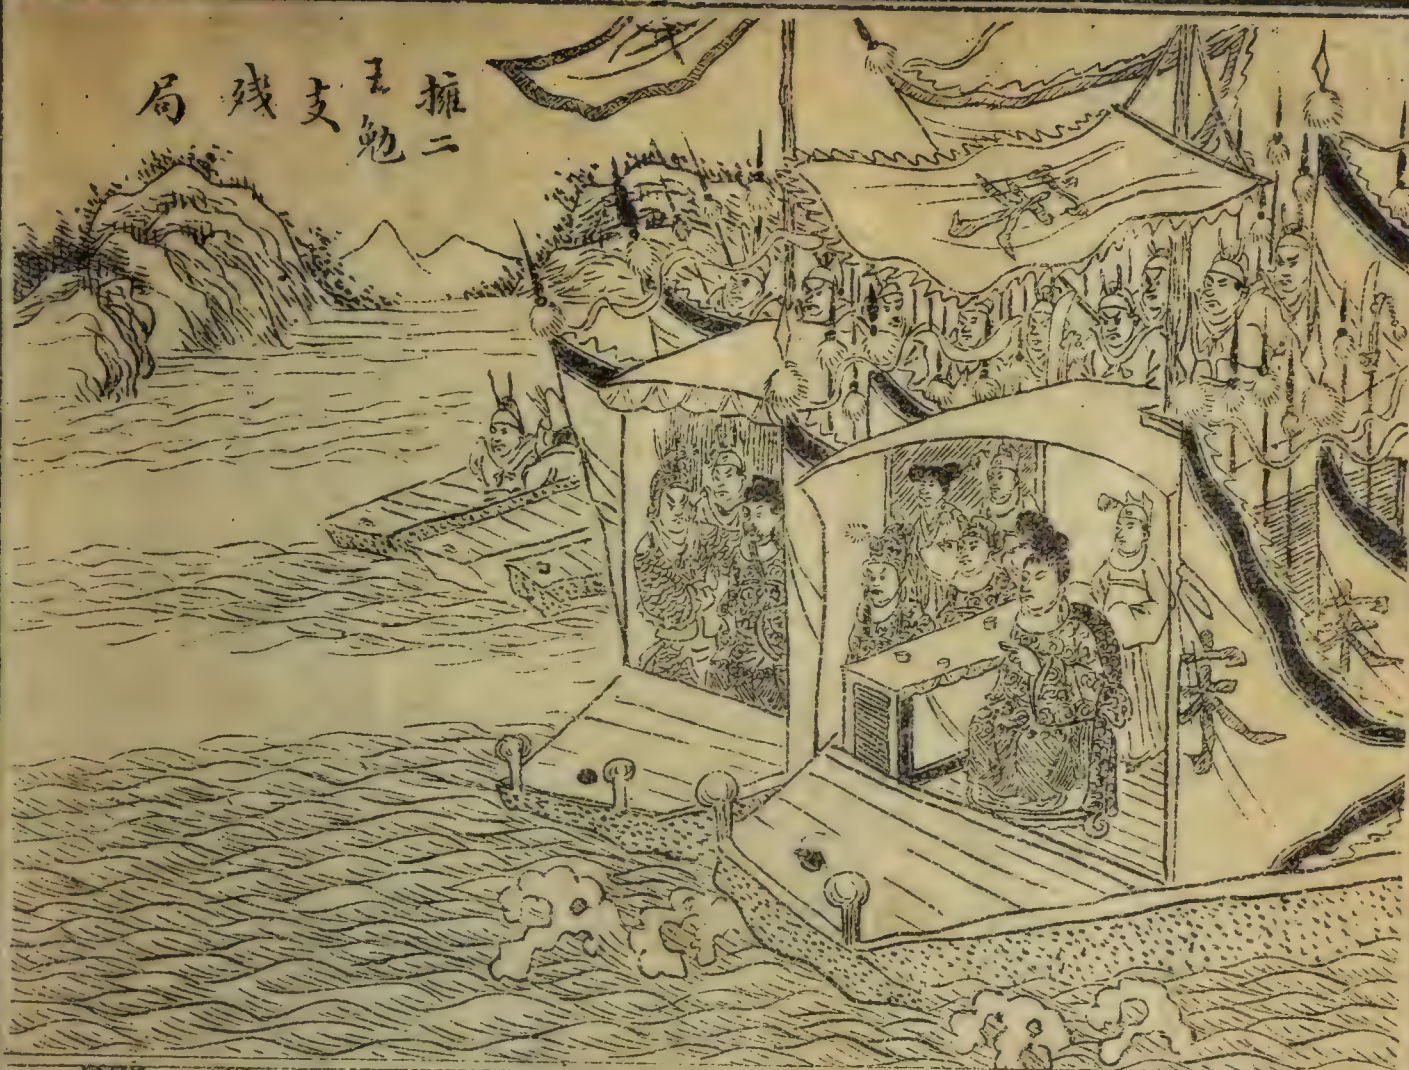 擁二
王勉
支
殘
局